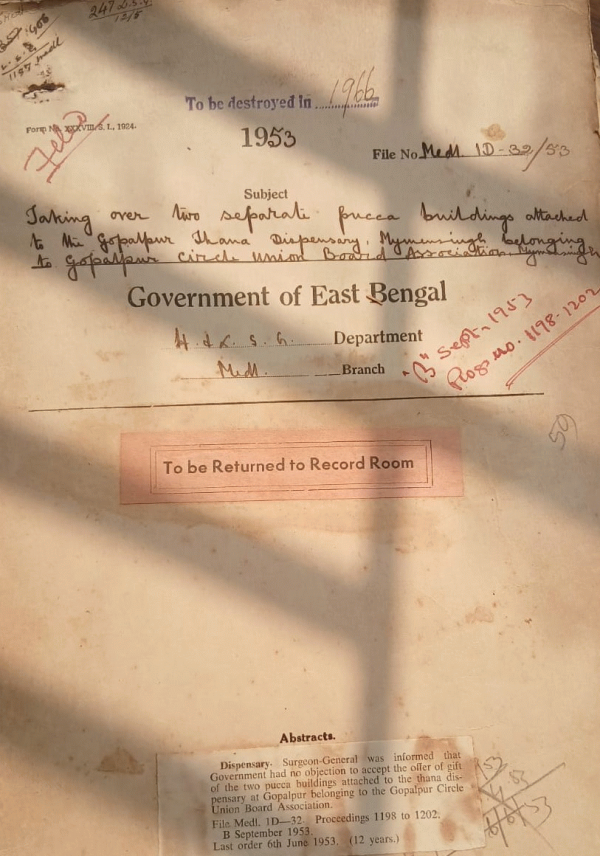 247 L.S.G
13/5
1197 medl
To be destroyed in 1966
Form No. XXXVIII/S. I., 1924.
1953
File No. Medl. 1D-32/53
Subject
Taking over two separate pucca buildings attached
to the Gopalpur Thana Dispensary, Mymensingh belonging
to Gopalpur Circle Union Board Association Mymensingh
Government of East Bengal
H. & L. S. G. Department
Medl. Branch
"B" Sept-1953
Progs no. 1198-1202
59
To be Returned to Record Room
Abstracts.
Dispensary. Surgeon-General was informed that
Government had no objection to accept the offer of gift
of the two pucca buildings attached to the thana dis-
pensary at Gopalpur belonging to the Gopalpur Circle
Union Board Association.
File Medl. 1D—32. Proceedings 1198 to 1202.
B September 1953.
Last order 6th June 1953. (12 years.)